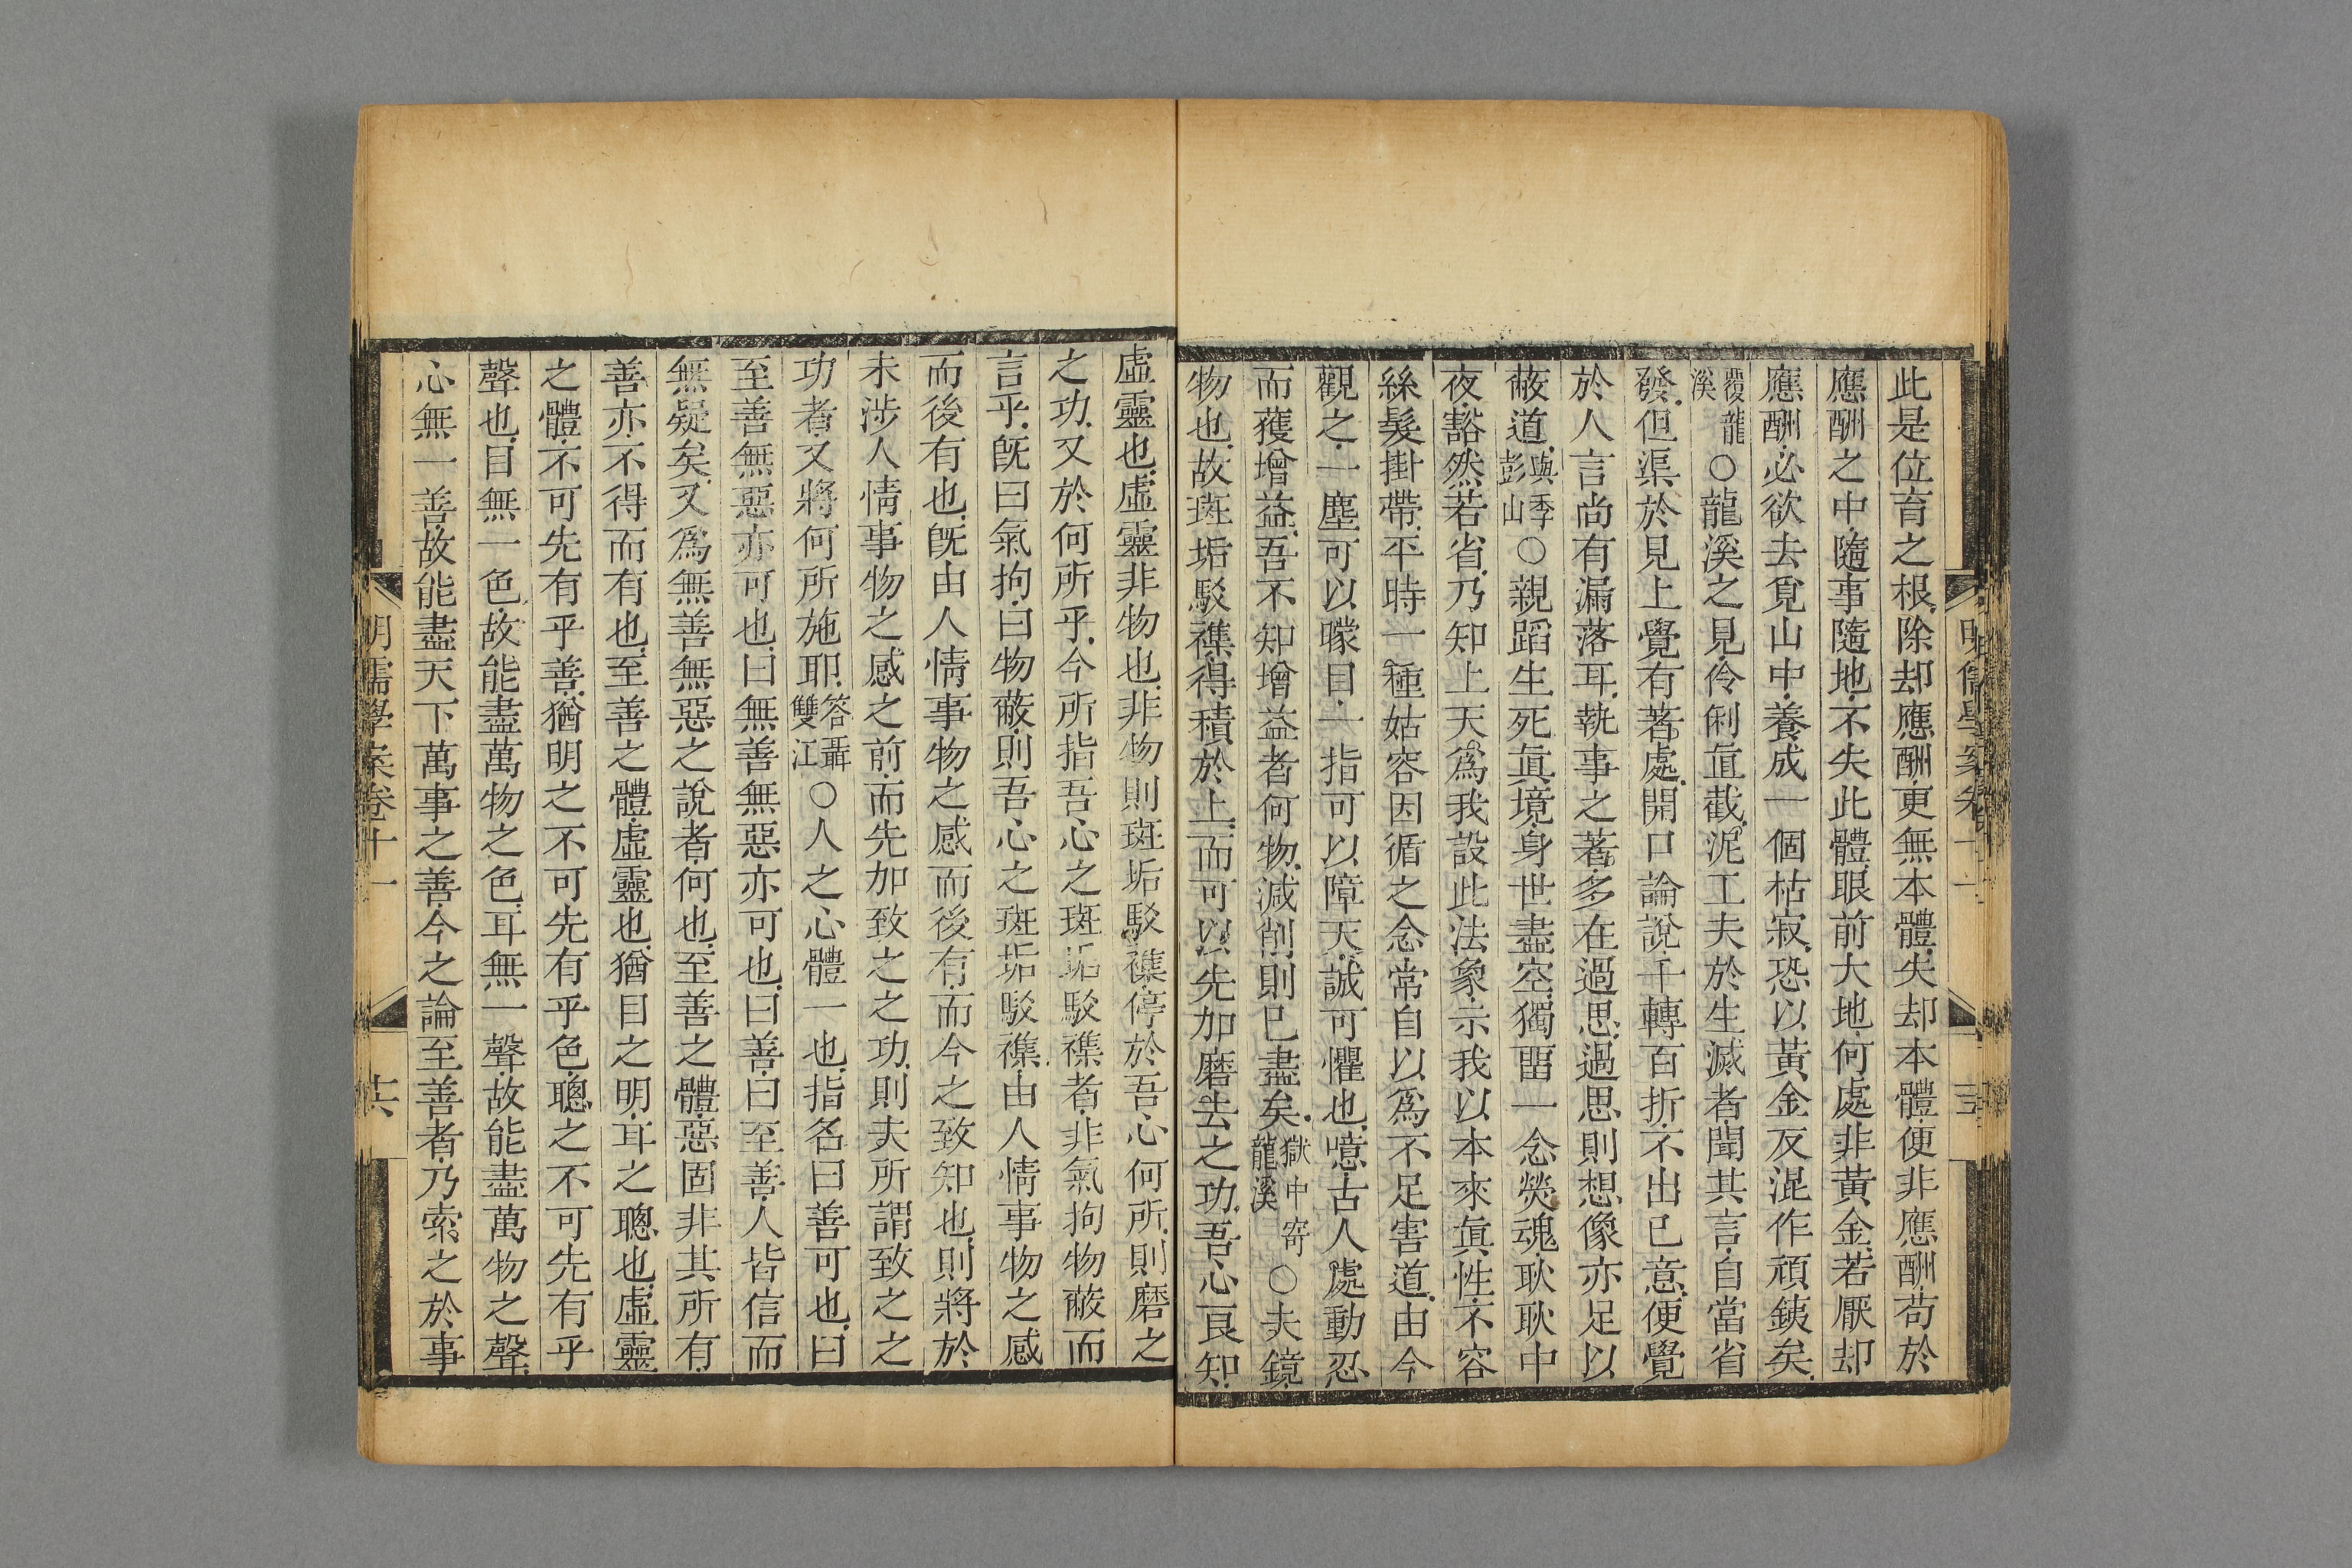 此是位育之根.除却應酬.更無本體.失却本體.便非應酬.苟於
應酬之中.隨事隨地.不失此體.眼前大地.何處非黃金.若厭却
應酬.必欲去覓山中.養成一個枯寂.恐以黃金反混作頑鐵矣.
覆龍溪○龍溪之見.伶俐直截.泥工夫於生滅者.聞其言.自當省
發.但渠於見上覺有著處.開口論說.千轉百折.不出己意.便覺
於人言尚有漏落耳.執事之著.多在過思.過思則想像亦足以
蔽道.與季彭山○親蹈生死眞境.身世盡空.獨畱一念熒魂.耿耿中
夜.豁然若省.乃知上天爲我設此法象.示我以本來眞性.不容
絲髮掛帶.平時一種姑容因循之念.常自以爲不足害道.由今
觀之.一塵可以矇目.一指可以障天.誠可懼也.噫.古人處動忍
而獲增益.吾不知增益者何物.減削則已盡矣.獄中寄龍溪○夫鏡
物也.故斑垢駁襍得積於上.而可以先加磨去之功.吾心良知
虛靈也.虛靈非物也.非物則斑垢駁襍停於吾心何所.則磨之
之功.又於何所乎.今所指吾心之斑垢駁襍者.非氣拘物蔽而
言乎.旣曰氣拘.曰物蔽.則吾心之斑垢駁襍.由人情事物之感
而後有也.旣由人情事物之感而後有.而今之致知也.則將於
未涉人情事物之感之前.而先加致之之功.則夫所謂致之之
功者.又將何所施耶.答聶雙江○人之心體一也.指名曰善可也.曰
至善無惡亦可也.曰無善無惡亦可也.曰善.曰至善.人皆信而
無疑矣.又爲無善無惡之說者.何也.至善之體.惡固非其所有.
善亦不得而有也.至善之體.虛靈也.猶目之明.耳之聰也.虛靈
之體.不可先有乎善.猶明之不可先有乎色.聰之不可先有乎
聲也.目無一色.故能盡萬物之色.耳無一聲.故能盡萬物之聲.
心無一善.故能盡天下萬事之善.今之論至善者.乃索之於事
明儒學案卷十一